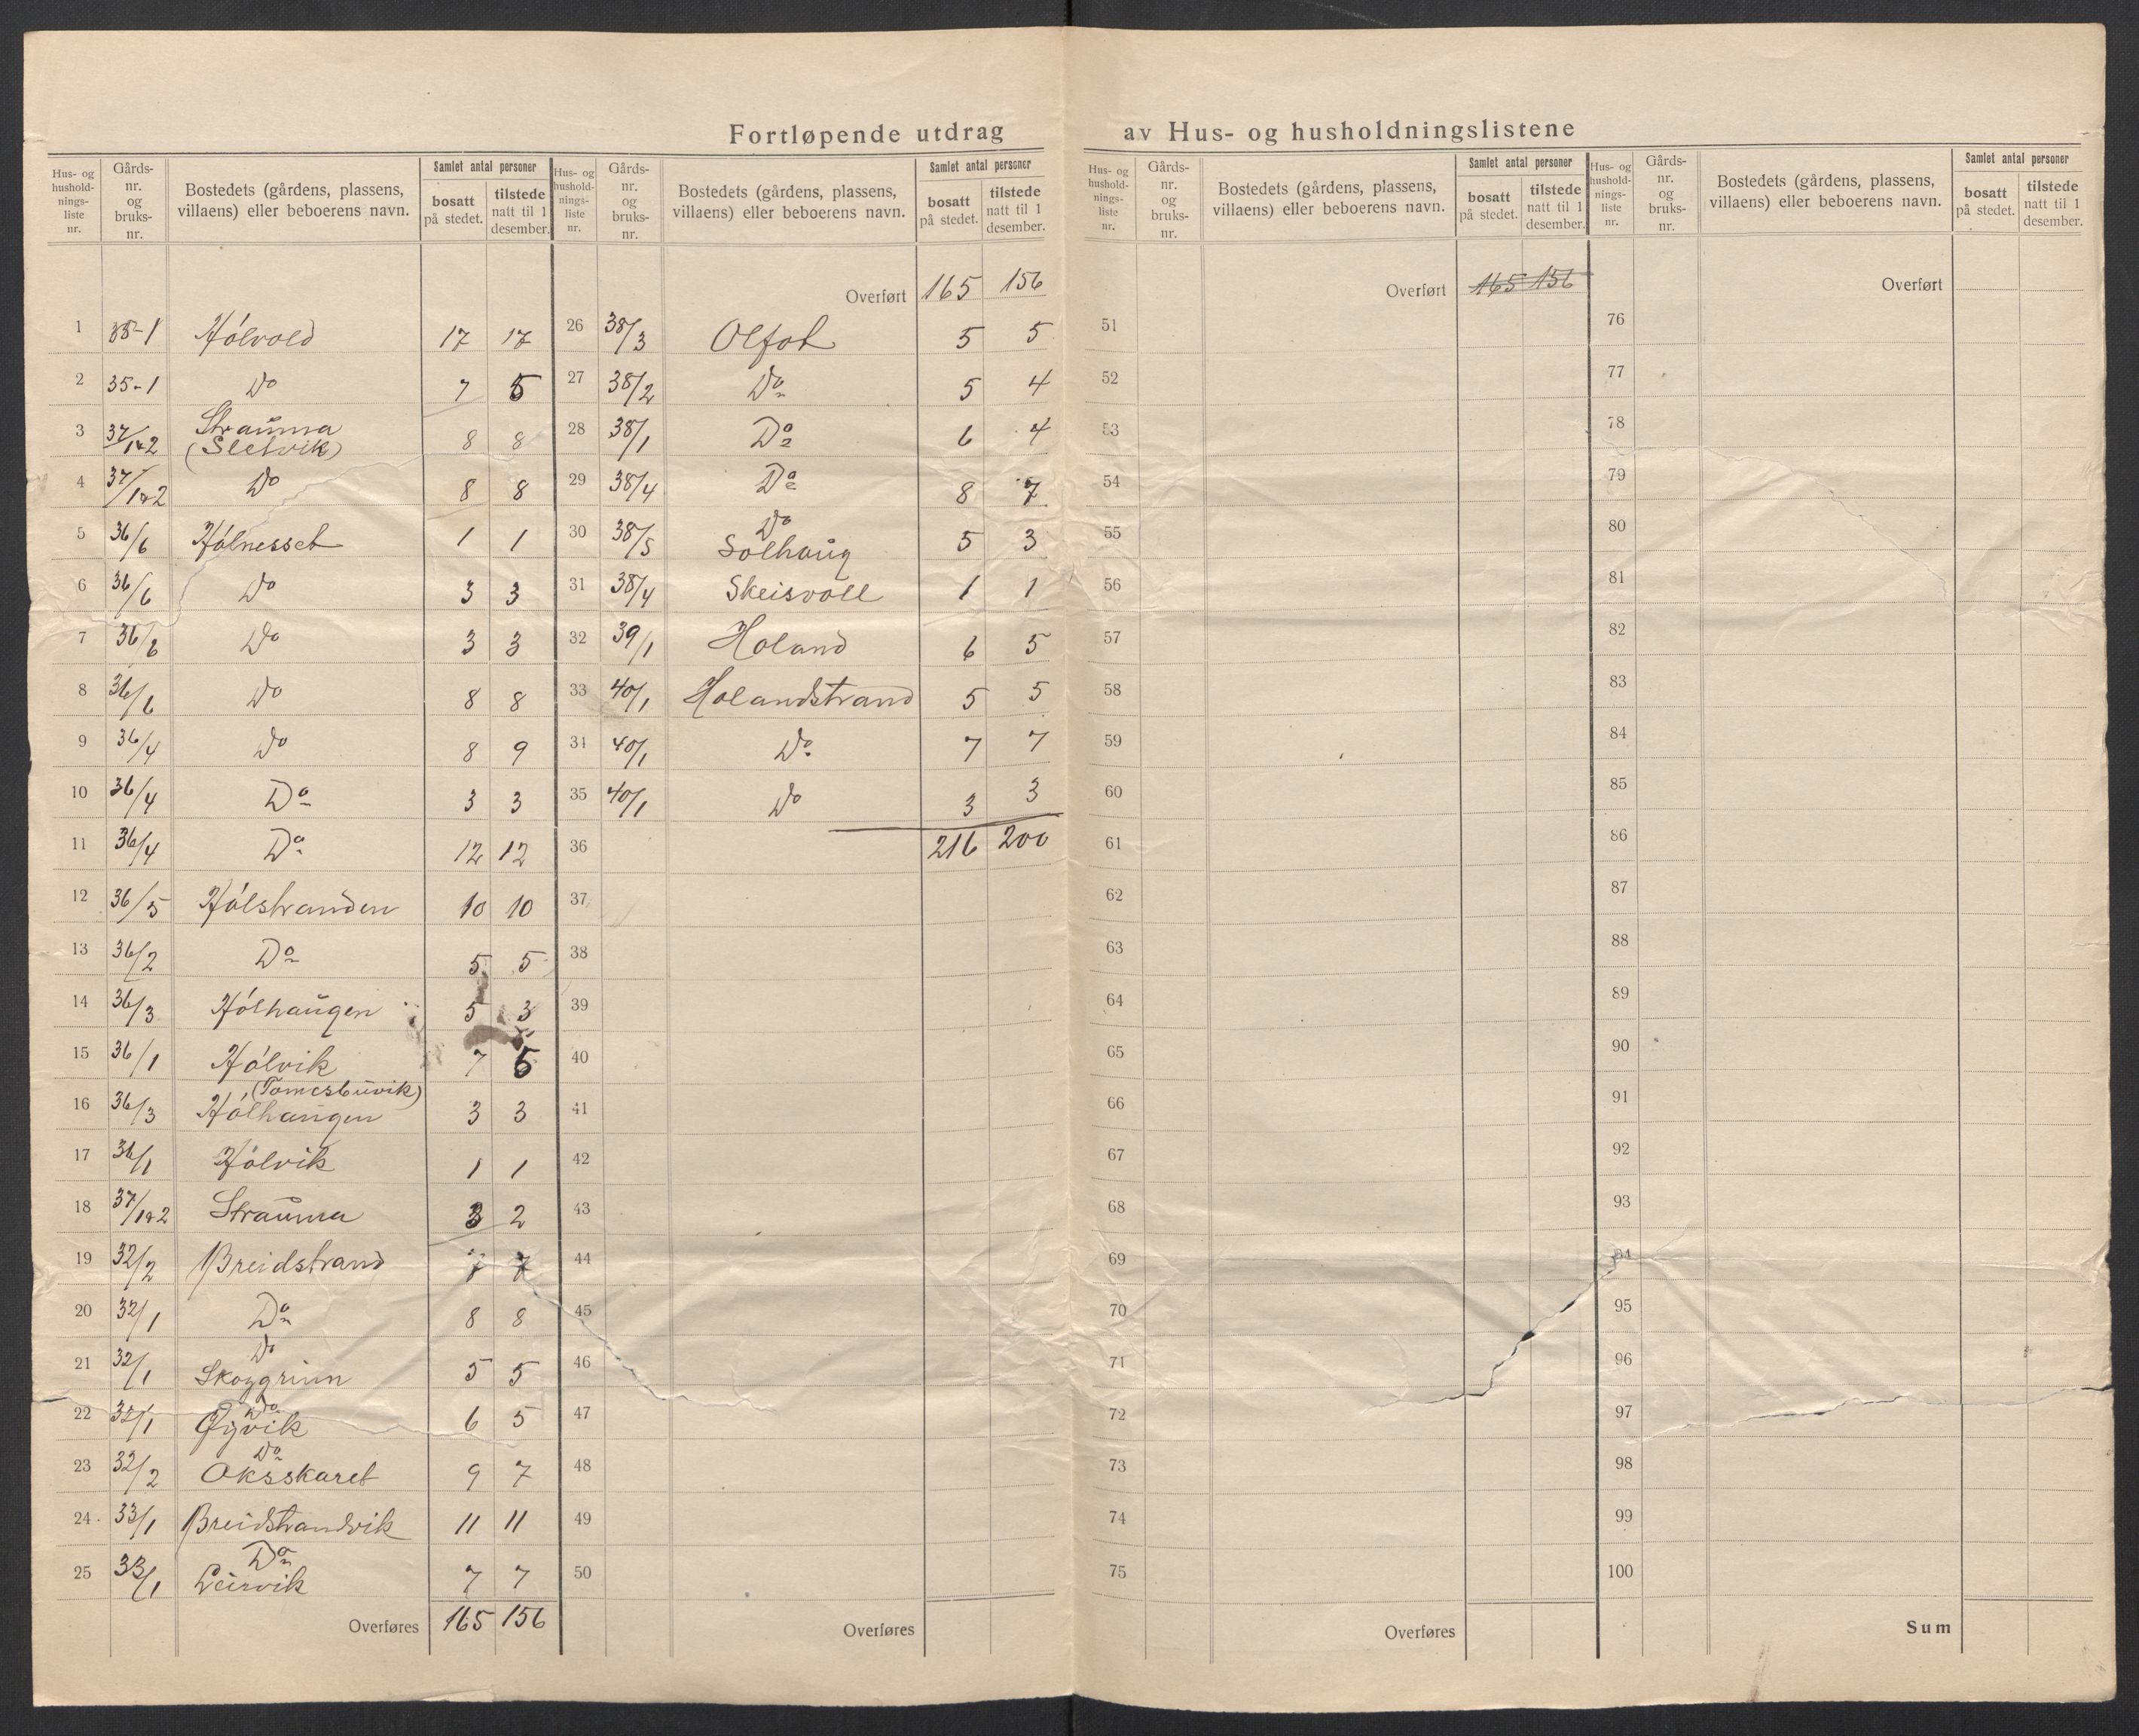 Fortløpende utdrag av Hus- og husholdningslistene
Hus- og hushold-nings-liste nr. Gårds-nr. og bruks-nr. Bostedets (gårdens, plassens, villaens) eller beboerens navn. Samlet antal personer bosatt på stedet. tilstede natt til 1 desember.
1 35-1 Hólvold 17 17
2 35-1 Do 7 5
3 37/1&2 Straüma (Sletvik) 8 8
4 37/1&2 Do 8 8
5 36/6 Hólnesset 1 1
6 36/6 Do 3 3
7 36/6 Do 3 3
8 36/6 Do 8 8
9 36/4 Do 8 9
10 36/4 Do 3 3
11 36/4 Do 12 12
12 36/5 Hólstranden 10 10
13 36/2 Do 5 5
14 36/3 Hólhaügen 5 3
15 36/1 Hólvik 7 5
16 36/3 Hólhaugen 3 3
17 36/1 Hólvik 1 1
18 37/1&2 Straüma 3 2
19 32/2 Breidstrand 7 7
20 32/1 Do 8 8
21 32/1 Do 5 5
22 32/1 Do 6 5
23 32/2 Do Oksskaret 9 7
24 33/1 Breidstrandvik 11 11
25 33/1 Do Leirvik 7 7
Overføres 165 156
Hus- og hushold-nings-liste nr. Gårds-nr. og bruks-nr. Bostedets (gårdens, plassens, villaens) eller beboerens navn. Samlet antal personer bosatt på stedet. tilstede natt til 1 desember.
Overført 165 156
26 38/3 Olfot 5 5
27 38/2 Do 5 4
28 38/1 Do 6 4
29 38/4 Do 8 7
30 38/5 Do Solhaüg 5 3
31 38/4 Skeisvoll 1 1
32 39/1 Holand 6 5
33 40/1 Holandstrand 5 5
34 40/1 Do 7 7
35 40/1 Do 3 3
36 216 200
37
38
39
40
41
42
43
44
45
46
47
48
49
50
Overføres
Hus- og hushold-nings-liste nr. Gårds-nr. og bruks-nr. Bostedets (gårdens, plassens, villaens) eller beboerens navn. Samlet antal personer bosatt på stedet. tilstede natt til 1 desember.
Overført 165 156
51
52
53
54
55
56
57
58
59
60
61
62
63
64
65
66
67
68
69
70
71
72
73
74
75
Overføres
Hus- og hushold-nings-liste nr. Gårds-nr. og bruks-nr. Bostedets (gårdens, plassens, villaens) eller beboerens navn. Samlet antal personer bosatt på stedet. tilstede natt til 1 desember.
Overført
76
77
78
79
80
81
82
83
84
85
86
87
88
89
90
91
92
93
94
95
96
97
98
99
100
Sum